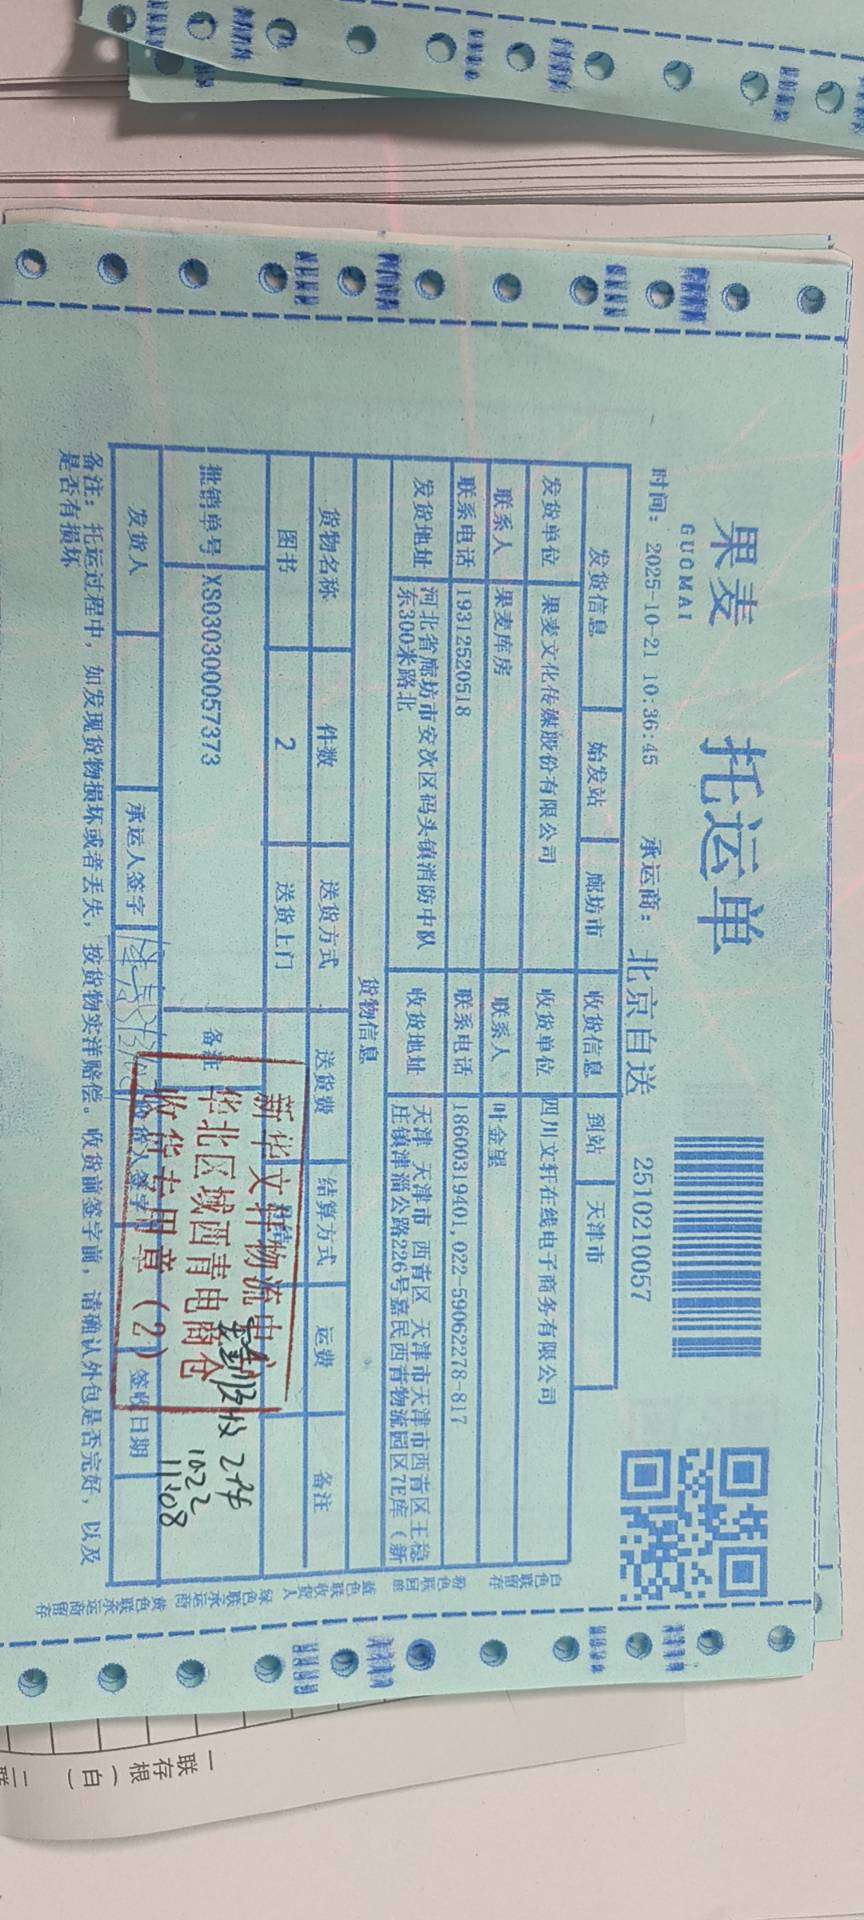 果麦
GUOMAI
托运单
时间: 2025-10-21 10:36:45 承运商: 北京自送 2510210057
发货信息 始发站 廊坊市 收货信息 到站 天津市
发货单位 果麦文化传媒股份有限公司 收货单位 四川文轩在线电子商务有限公司
联系人 果麦库房 联系人 叶金望
联系电话 19312520518 联系电话 18600319401,022-59062278-817
发货地址 河北省廊坊市安次区码头镇消防中队东300米路北 收货地址 天津 天津市 西青区 天津市天津市西青区王稳庄镇津淄公路226号嘉民西青物流园区7E库(新
货物信息
货物名称 件数 送货方式 送货费 结算方式 运费 备注
图书 2 送货上门
批销单号 XS030300057373 备注
发货人 承运人签字 收货人签字 签收日期
新华文轩物流
华北区域西青电商仓
收货专用章(2)
1022
11:08
备注: 托运过程中, 如发现货物损坏或者丢失, 按货物实洋赔偿。收货前签字前, 请确认外包是否完好, 以及
是否有损坏
白色联留存
粉色联回单
蓝色联收货人
绿色联承运商
黄色联承运商留存
一联存根(白)
二联